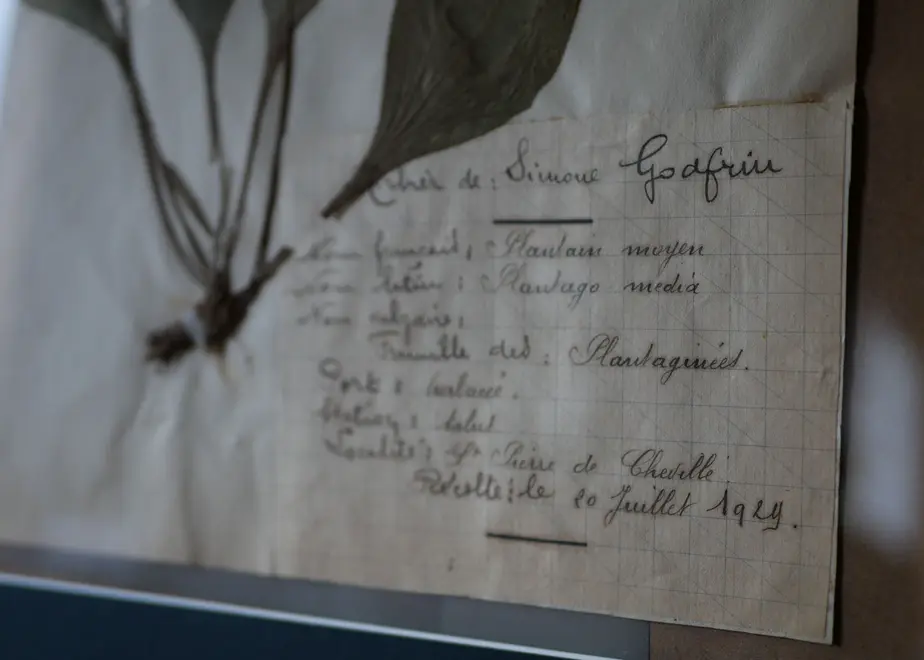 de : Simone Godfrin
Nom français : Plantain moyen
Nom latin : Plantago media
Nom vulgaire :
Famille des : Plantaginées.
Port :
Station : talus
Localité : St Pierre de Cheville
Récolté : le 20 Juillet 1929.